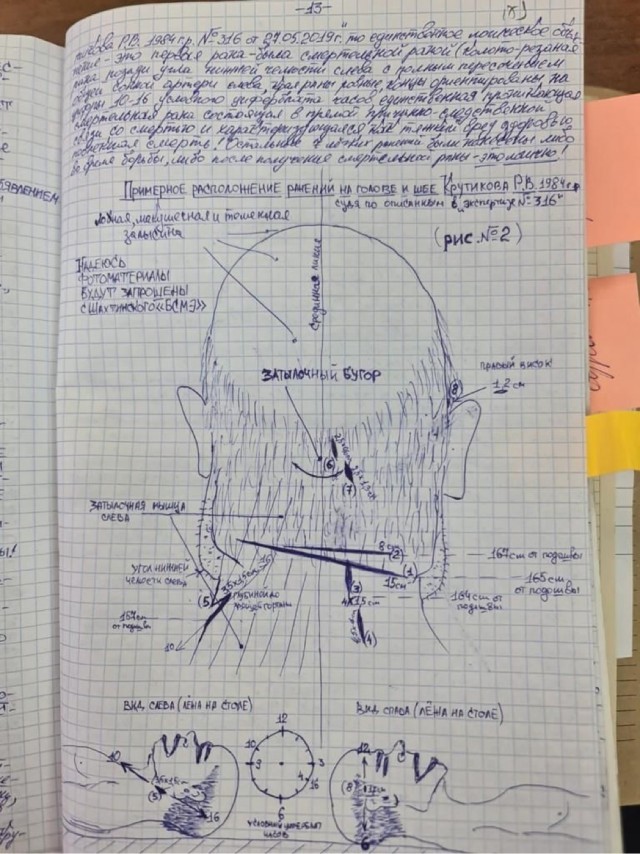 -13-
Р.В. 1984 г.р. №316 от 27.05.2019г." то единственное логическое
- это первая рана - была смертельной раной (колото-резаная
рана позади угла нижней челюсти слева с полным пересечением
сонной артери слева, края раны ровные, концы ориентированы на
цифры 10-16 условного циферблата часов единственная проникающая
смертельная рана состоящая в прямой причинно-следственной
связи со смертью и характеризующаяся как тяжкий вред здоровью
повлекший смерть! Остальные 7 ранений были нанесены либо
во время борьбы, либо после получения смертельной раны - это
Примерное расположение ранений на голове и шее Крутикова Р.В. 1984 г.р.
судя по описанным в „экспертизе №316"
Лобная, и теменная
залысина
(рис. №2)
Надеюсь
фотоматериалы
будут запрошены
с Шахтинского «БСМЭ»
Срединная линия
Затылочный бугор
правый висок
(8)
1,2 см
(6)
(7)
Затылочная мышца
слева
8 см (2)
(1)
15 см
167 cm от подошвы
165 cm
от подошвы
Угол нижней
челюсти слева
(5)
16
(3)
4х1,5 cm
164 cm от
подошвы
157 cm
от подошвы
(4)
10
Вид слева (лёжа на столе)
Вид справа (лёжа на столе)
12
9
3
4
16
6
условный циферблат
часов
10
(5)
16
12
(8)
6